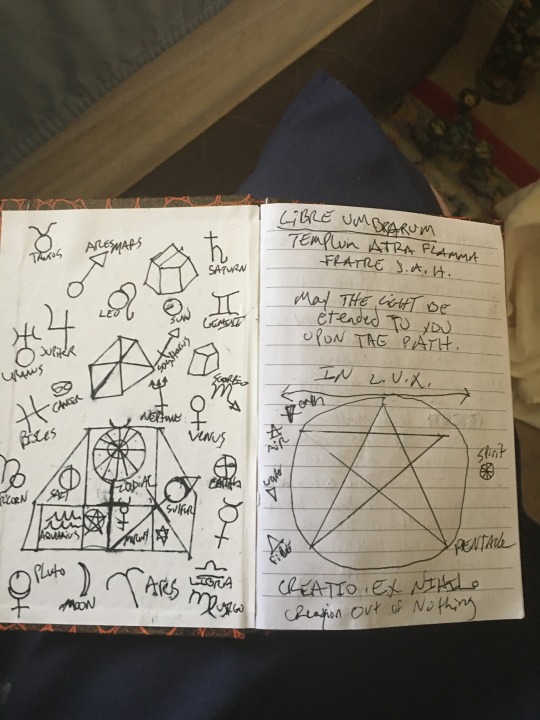 TAURUS
ARES MARS
SATURN
LEO
SUN
GEMENI
JUPITER
URANUS
SAGITARIUS
CANCER
SCORPIO
PISCES
NEPTUNE
VENUS
ZODIAC
SALT
SULFUR
EARTH
AQUARIUS
PLUTO
MOON
ARIS
LIBRA
VIRGO
LIBRE UMBRARUM
TEMPLUM ATRA FLAMMA
FRATRE J.A.H.
MAY THE LIGHT BE
EXTENDED TO YOU
UPON THE PATH.
IN L.V.X.
EARTH
AIR
Spirit
FIRE
PENTACLE
CREATIO EX NIHILO
Creation Out of Nothing